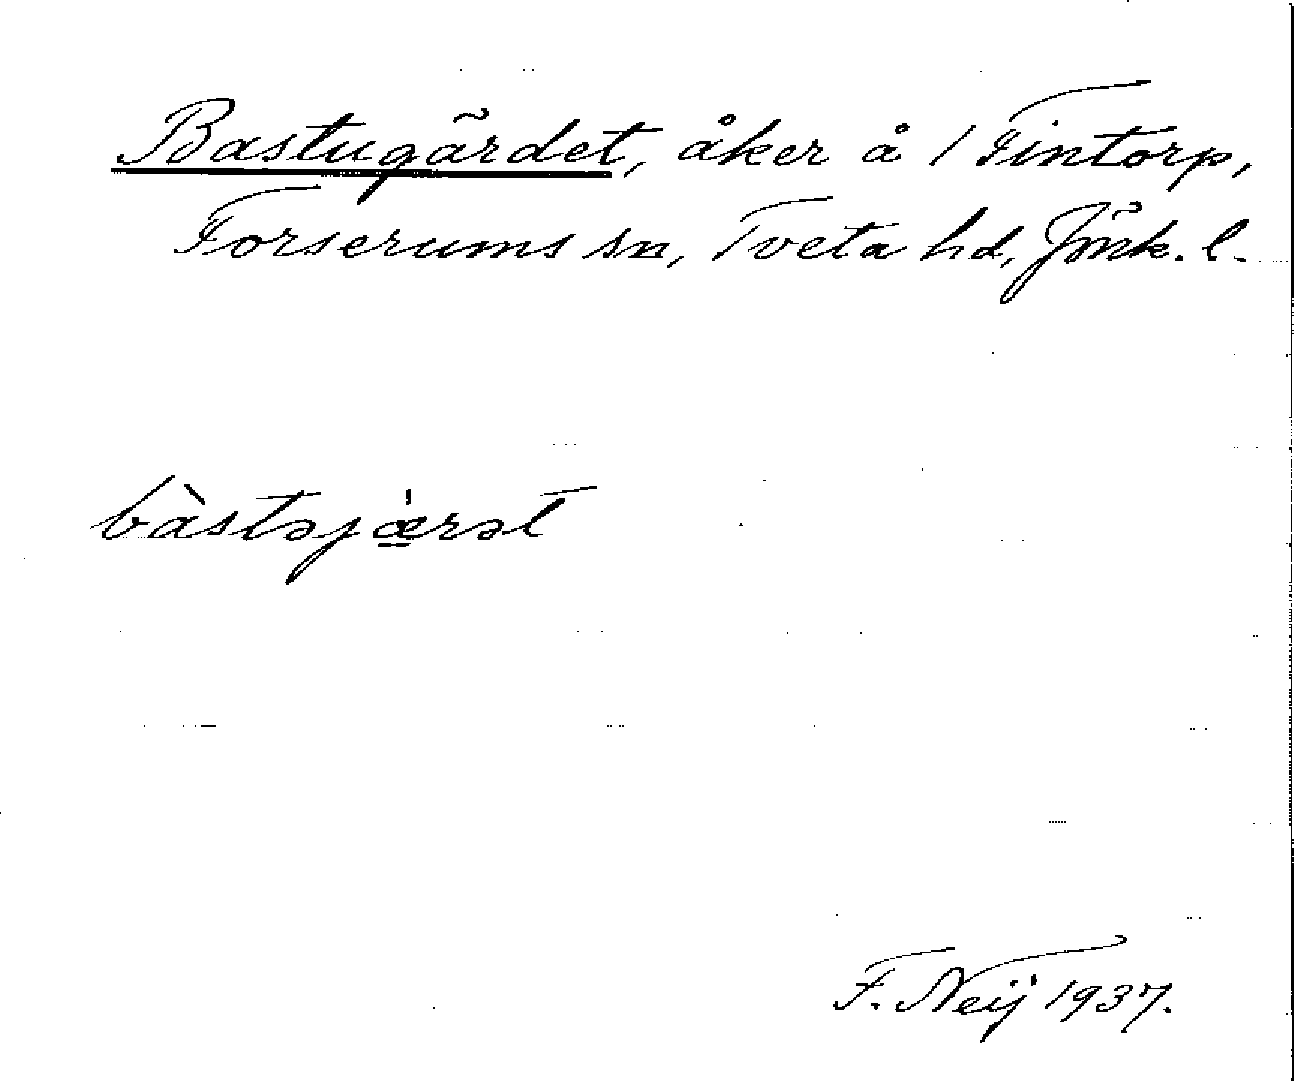 Bastugärdet, åker å 1 Fintorp,
Forserums sn, Tveta hd, Jönk. l.
bàstəjæ̱̍rət
F. Neij 1937.